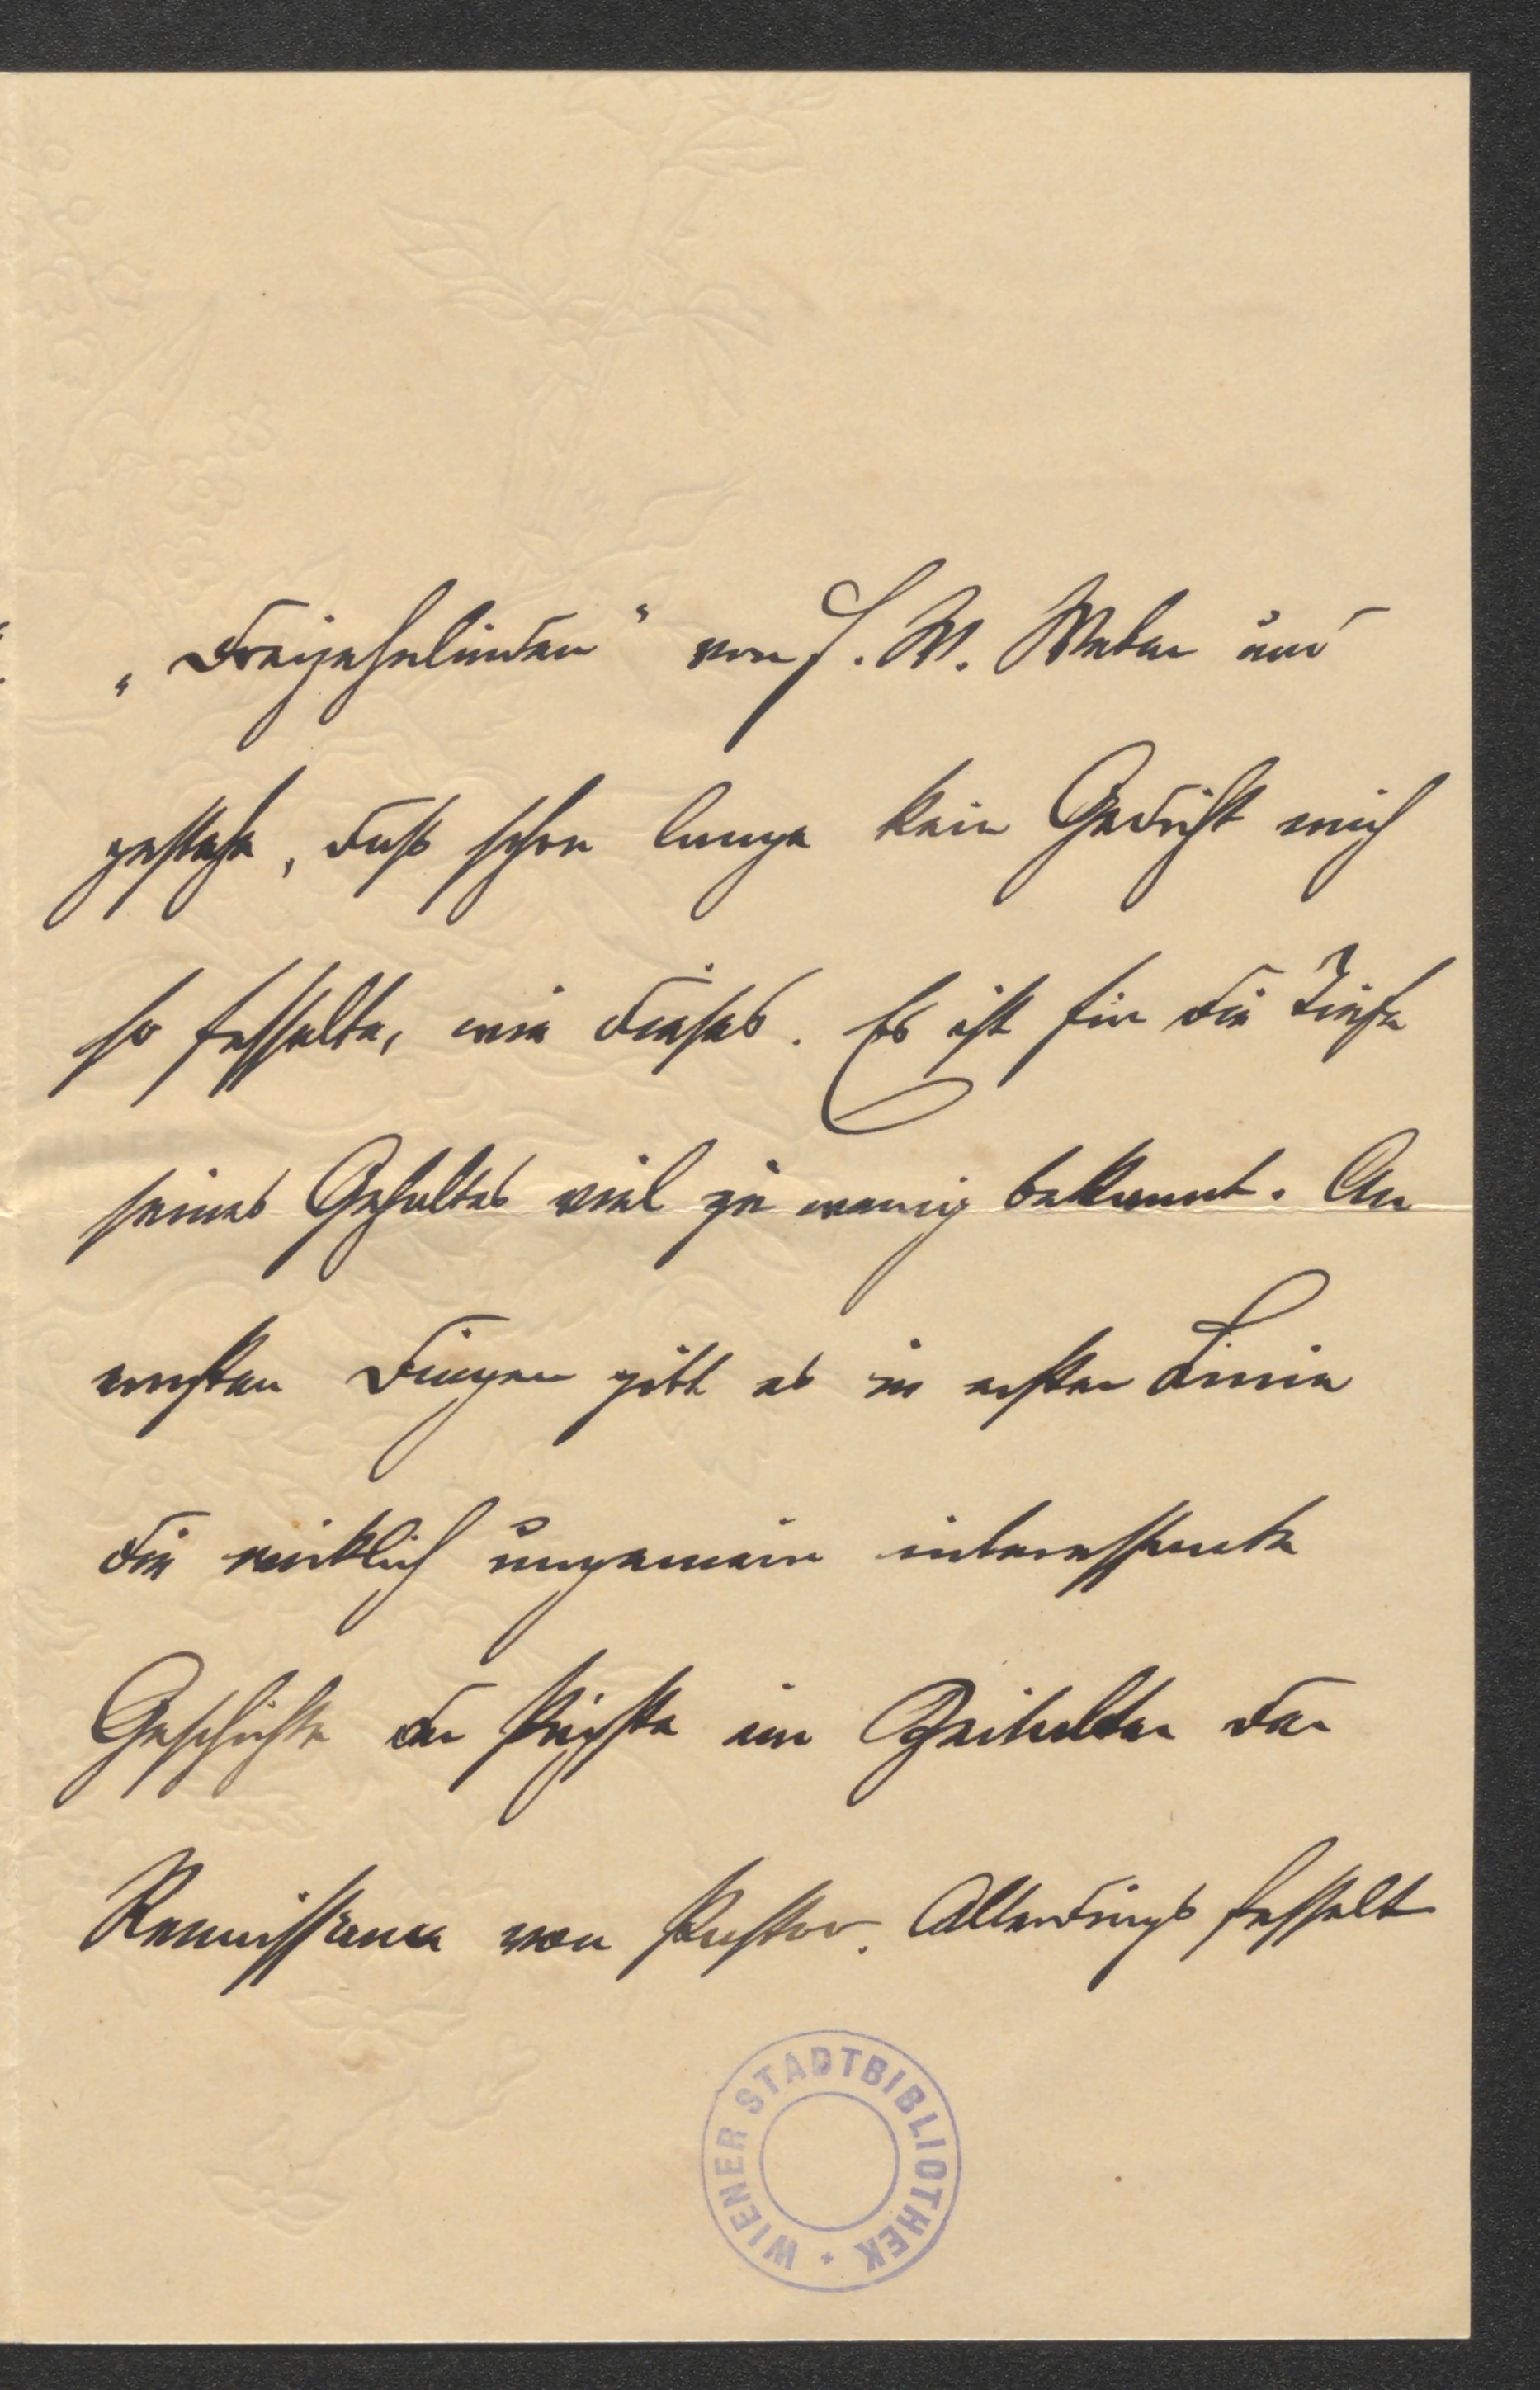 „Dreizehnlinden“ von F. W. Weber und
gestehe, daß schon lange kein Gedicht mich
so fesselte, wie dieses. Es ist für die Tiefe
seines Gehaltes viel zu wenig bekannt. An
ernsten Dingen gibt es in erster Linie
die wirklich ungemein interessante
Geschichte der Päpste im Zeitalter der
Renaissance von Pastor. Allerdings fesselt
WIENER STADTBIBLIOTHEK *